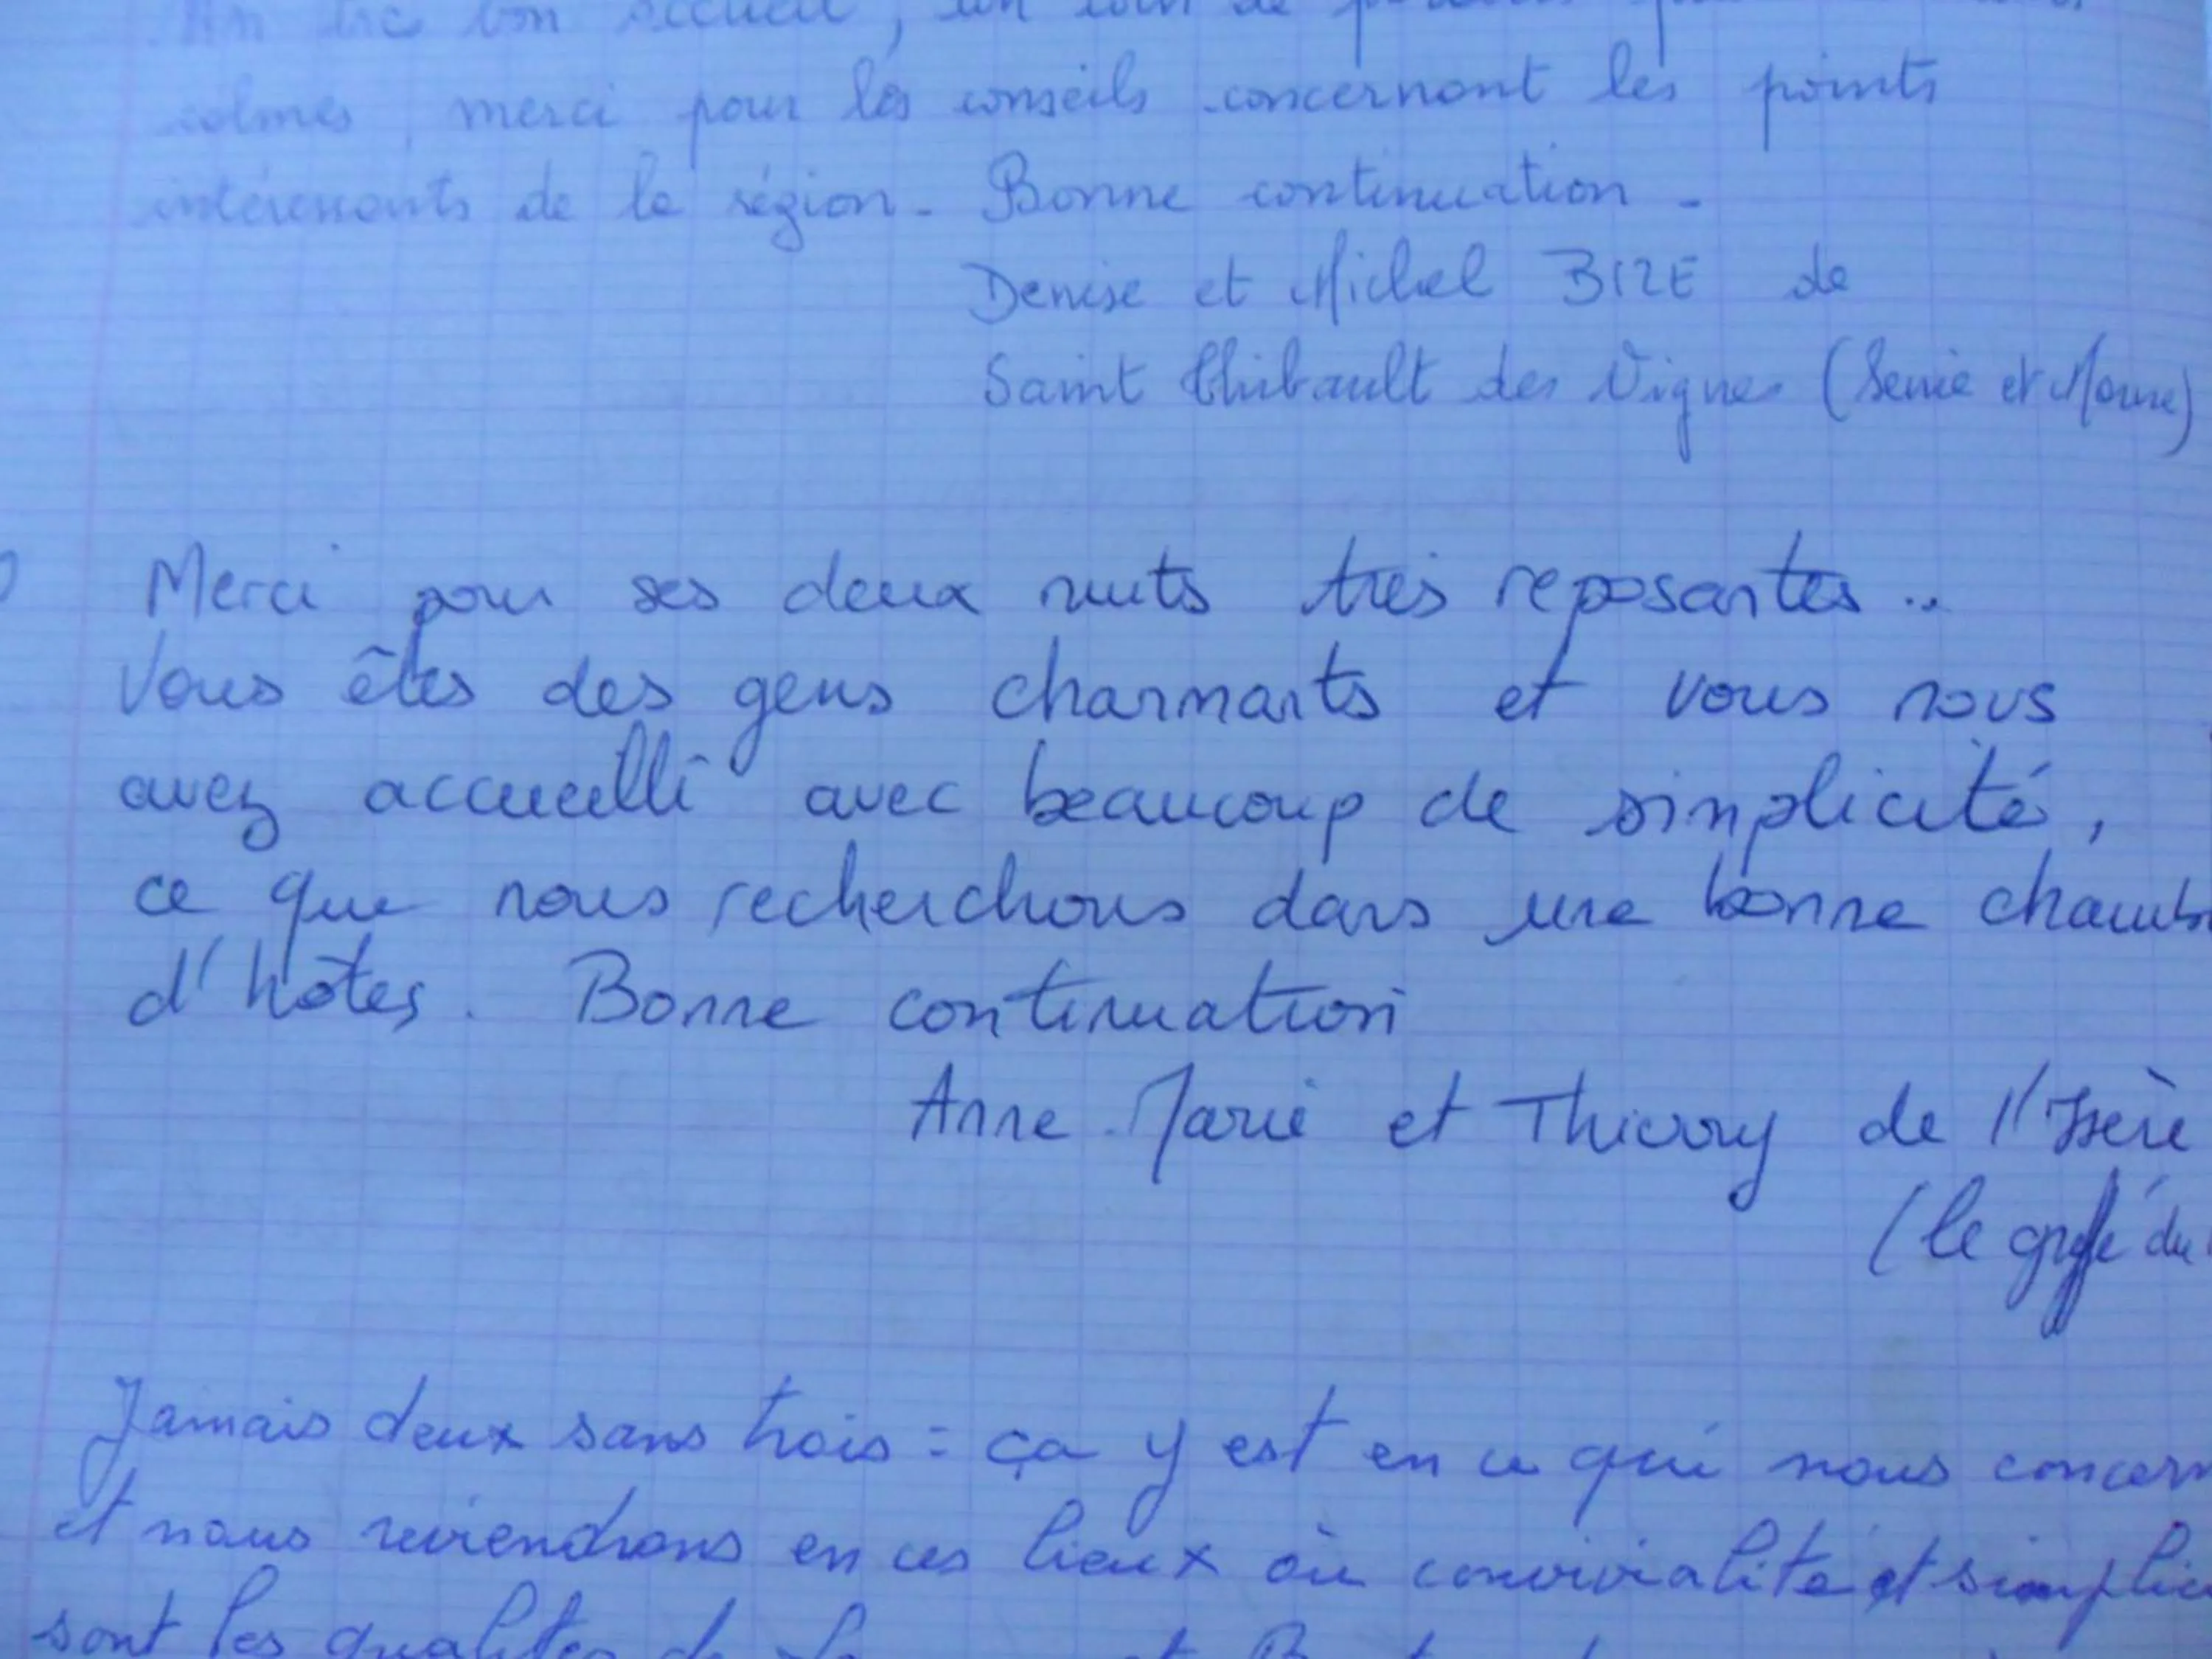 bon accueil, un coin de
calmes, merci pour les conseils concernant les points
intéressants de la région - Bonne continuation -
Denise et Michel BIZE de
Saint Thibault des Vignes (Seine et Marne)
Merci pour ses deux nuits très reposantes..
Vous êtes des gens charmants et vous nous
avez accueilli avec beaucoup de simplicité,
ce que nous recherchons dans une bonne chamb
d'hôtes. Bonne continuation
Anne Marie et Thierry de l'Isère
(le golfe du
Jamais deux sans trois : ça y est en ce qui nous concern
et nous reviendrons en ces lieux où convivialité et simplici
sont les qualités de